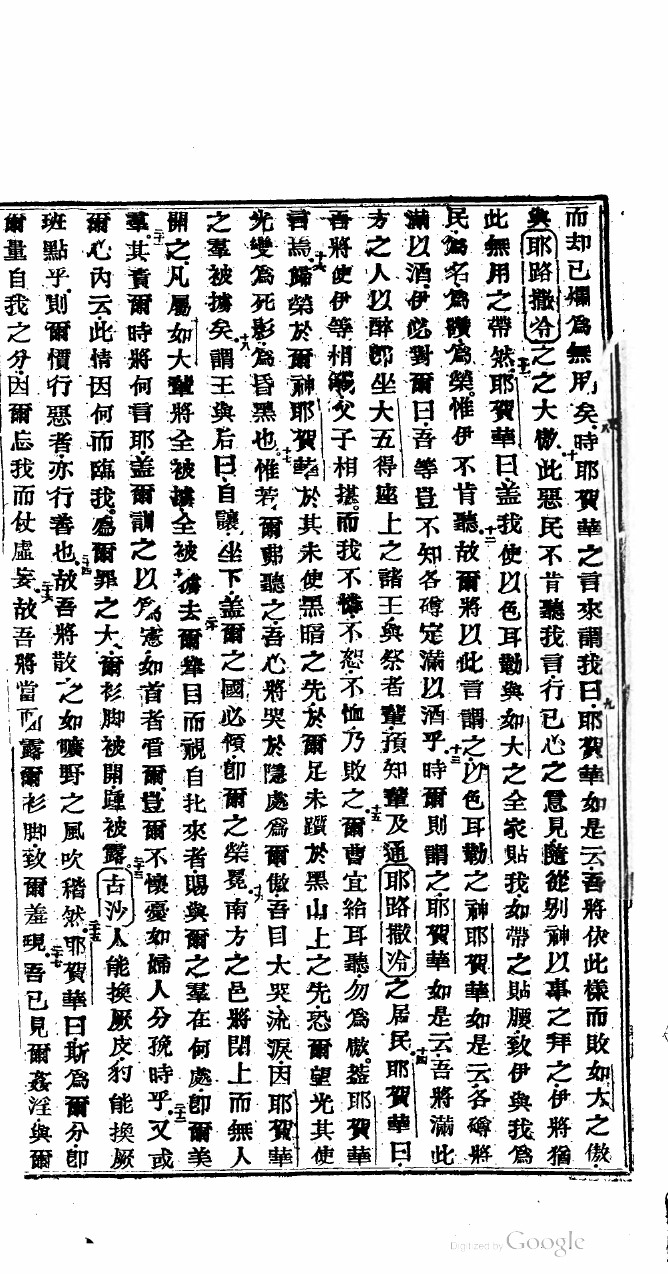 而却已爛爲無用矣時耶賀華之言來謂我曰九耶賀華如是云吾將依此樣而敗如大之傲
與耶路撒冷之之大傲十此惡民不肯聽我言行已心之意見隨從别神以事之拜之伊將猶
此無用之帶然十一耶賀華曰盖我使以色耳勒與如大之全家貼我如帶之貼腰致伊與我爲
民爲名爲讚爲榮惟伊不肯聽故十二爾將以此言謂之以色耳勒之神耶賀華如是云各罇將
滿以酒伊必對爾曰吾等豈不知各罇定滿以酒乎十三時爾則謂之耶賀華如是云吾將滿此
方之人以醉即坐大五得座上之諸王與祭者輩預知輩及通耶路撒冷之居民十四耶賀華曰
吾將使伊等相觸父子相搓而我不憐不恕不恤乃敗之十五爾曹宜給耳聽勿爲傲蓋耶賀華
言焉十六歸榮於爾神耶賀華於其未使黑暗之先於爾足未躓於黑山上之先恐爾望光其使
光變爲死影爲昏黑也十七惟若爾弗聽之吾心將哭於隱處爲爾傲吾目大哭流淚因耶賀華
之羣被擄矣十八謂王與后曰自讓坐下盖爾之國必傾即爾之榮冕十九南方之邑將閉上而無人
開之凡屬如大輩將全被擄全被擄去二十爾舉目而視自北來者賜與爾之羣在何處即爾美
羣二十一其責爾時將何言耶盖爾訓之以爲憲如首者管爾豈爾不懷憂如婦人分㝃時乎二十二又或
爾心內云此情因何而臨我爲爾罪之大爾衫脚被開踵被露二十三古沙人能換厥皮豹能換厥
班點乎則爾慣行惡者亦行善也二十四故吾將散之如曠野之風吹稭然二十五耶賀華曰斯爲爾分即
爾量自我之分因爾忘我而仗虛妄二十六故吾將當面露爾衫脚致爾羞現二十七吾已見爾姦淫與爾
Digitized by Google